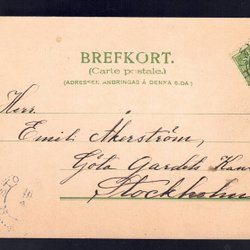 BREFKORT.
(Carte postale.)
(ADRESSEN ANBRINGAS Å DENNA SIDA)
Herr
Emil Åkerström,
Göta Gardes Kans
Stockholm